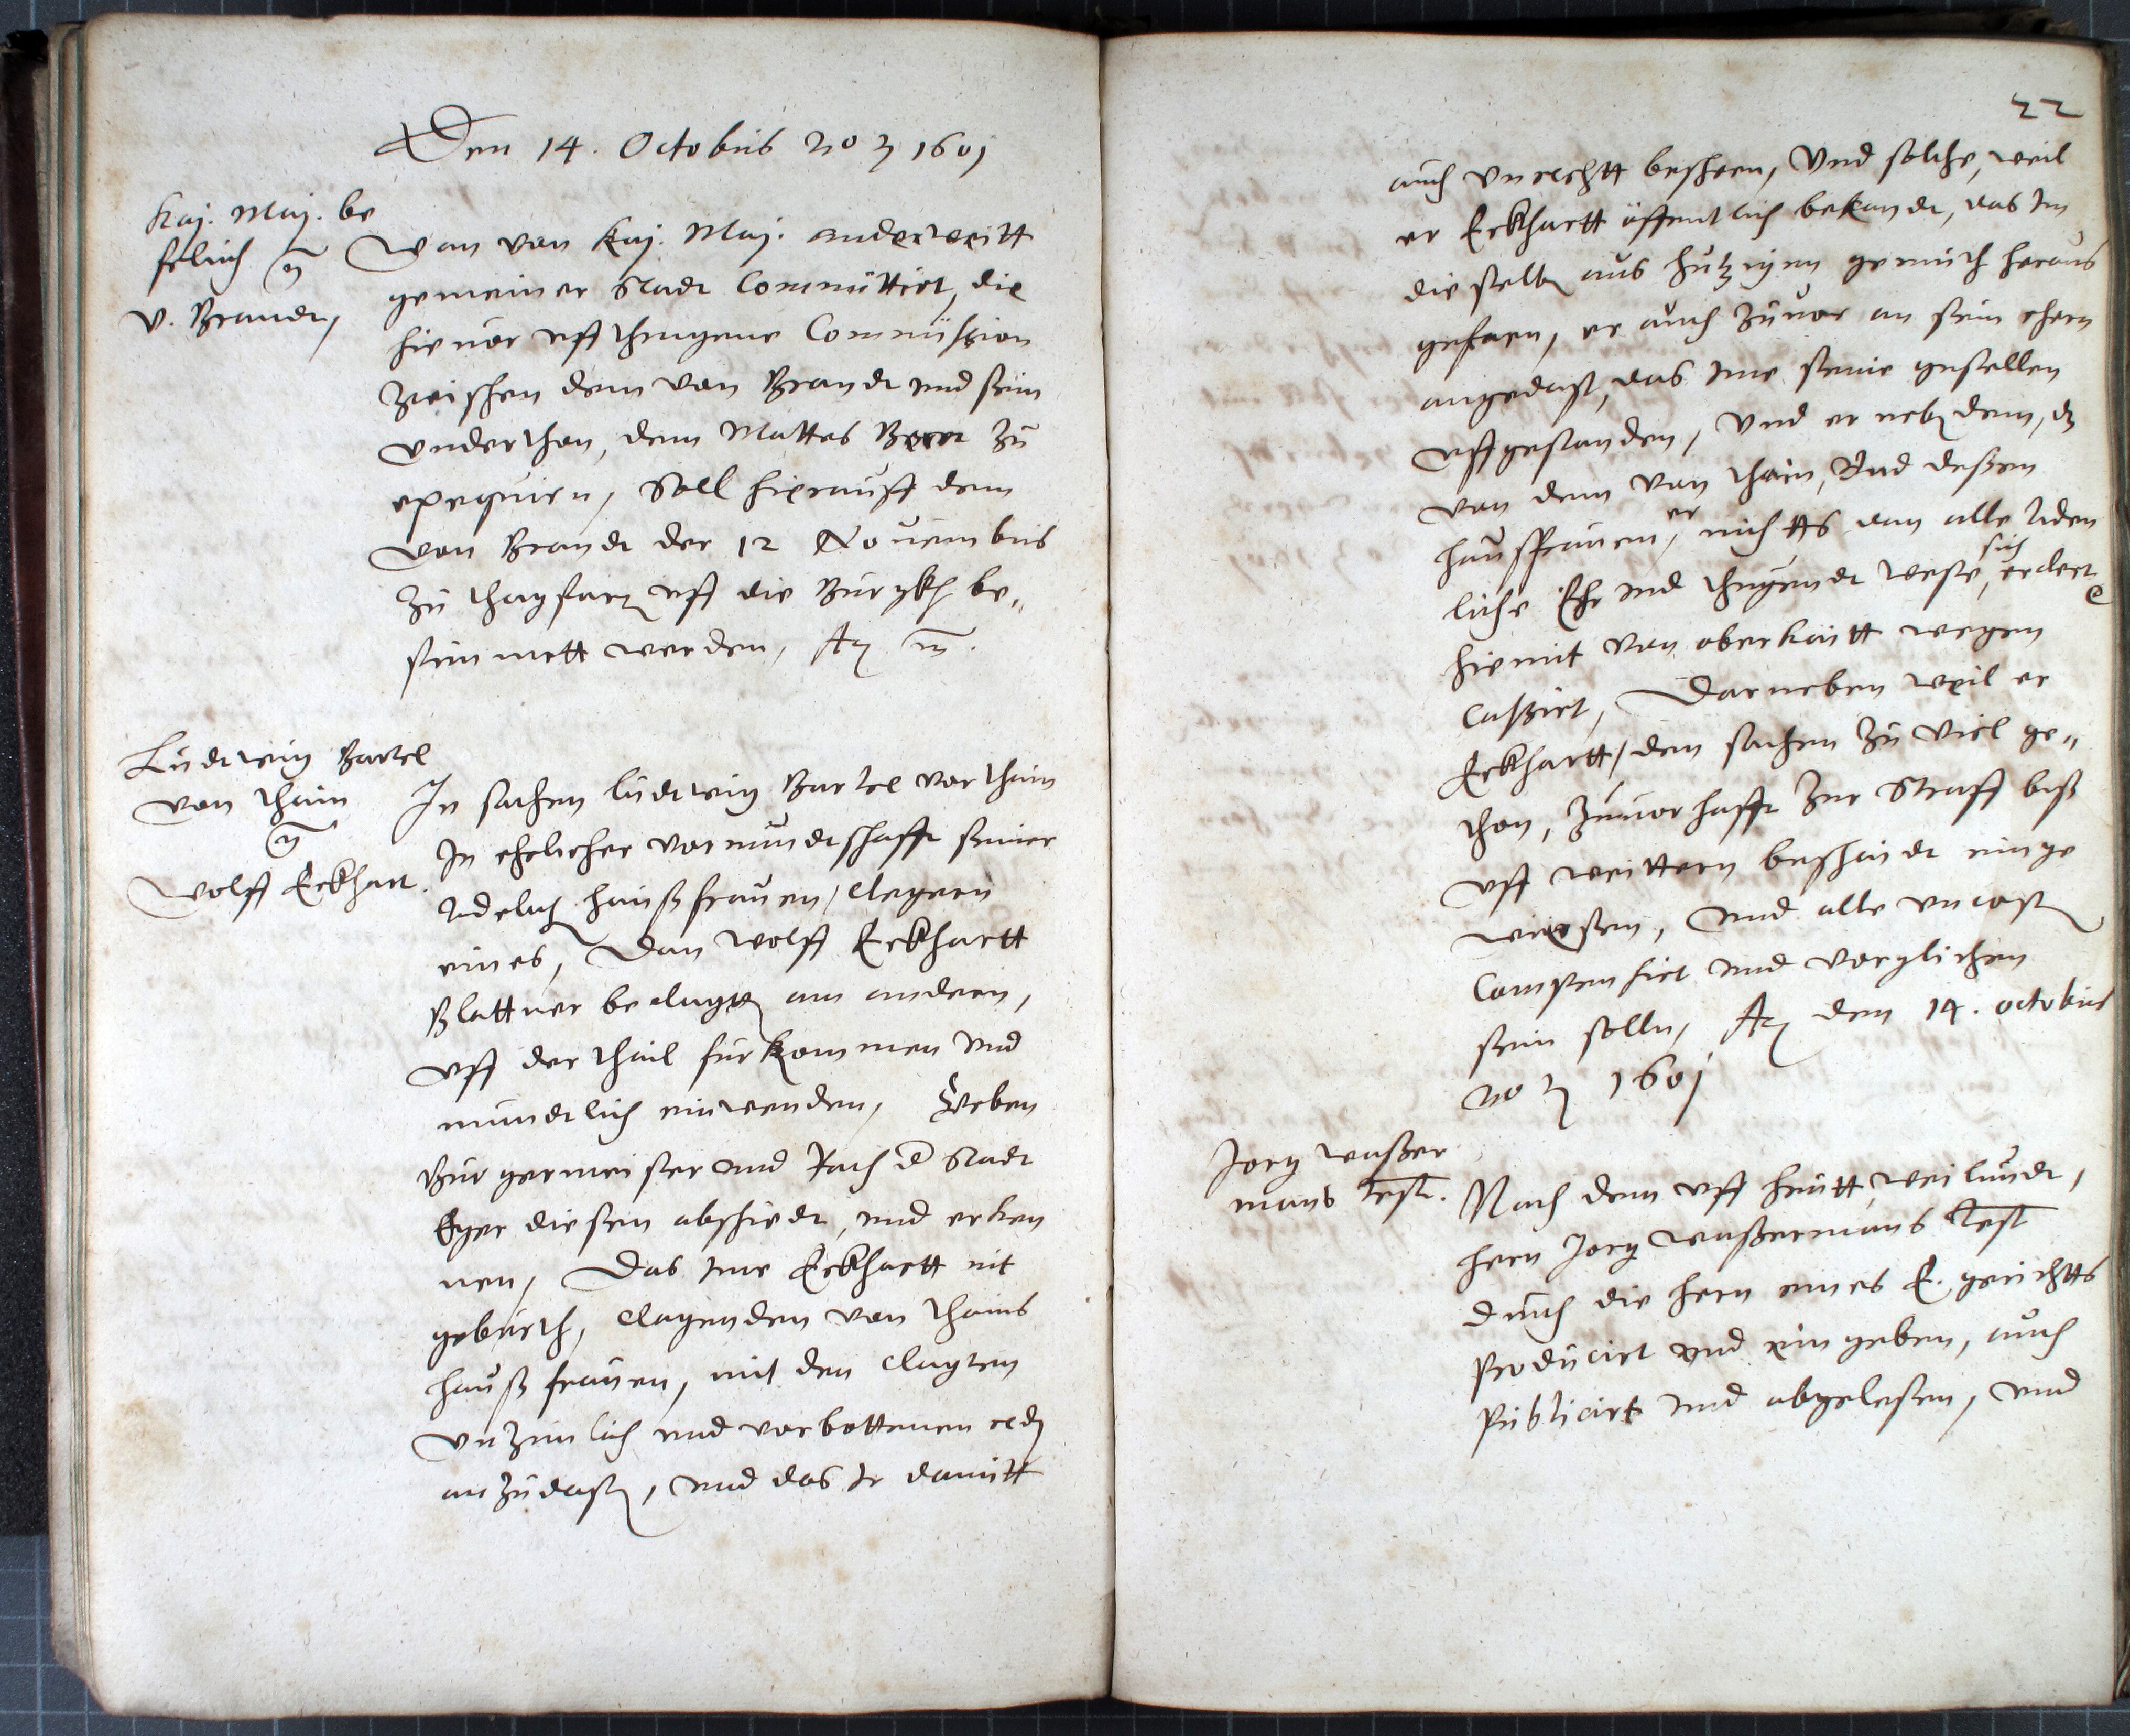 Den 14. Octobris Ao 1601
Kaj. Maj. be
felich
v. Brandt,
Wan von Kaj. Maj. anderweitt
gemeiner Stadt Committirt, die
hievor uffthragene Commission
zwischen dem von Brandt und sein
underthon, dem Mattes Beer zu
exequirn, Soll hierauff dem
von Brandt der 12 Novembris
zu thagfart uff die Burgkh be„
stimmett werden, Act.
Ludtwig Bartel
von Thain
Wolff Eckhart.
In sachen Ludtwig Bartel von Thain
In ehelicher vormundtschafft seiner
Adelich haußfrauen, Clegern
eines, Dan Wolff Eckhartt
Blattner beclagtt am andern,
Uff der theil fürkommen und
mundtlich einwenden, Geben
Burgermeister und Rath d Stadt
Eger diesen abschiedt, und erken
nen, Das Ime Eckhartt nit
gebürth, Clagenden von Thains
haußfrauen, mit den Clagten
unzimlich und verbottenen red
anzudasten, und das Ir damitt
22
auch unrechtt beschen, Und solche, weil
er Eckhartt öffentlich bekandt, das Im
dieselb aus hitzigem gemüth heraus
gefarn, er auch zuvor an sein ehern
angedast, das Ime seine gesellen
uffgestanden, Und er neb dem, dz
von dem von Thain, Und deßen
haußfrauen, er nichtts dan alle Aden
liche Ehr und thugendt weste, sich erclert
hiemit von oberkaitt wegen
Cassirt, Darneben weil er
Eckhartt, dem sachen zu viel ge„
thon, zuvor hafft zur Straff biß
uff weittern beschaidt einge
wießen, und alle uncost
Compensirt und verglichen
sein solln, Act den 14. octobris
Ao 1601
Jorg Waßer
mans Test.
Nach dem uff heutt weilundt,
hern Jorg Waßermans Test
durch die hern eines E. gerichtts
Producirt und eingeben, auch
Publicirt und abgeleßen, und